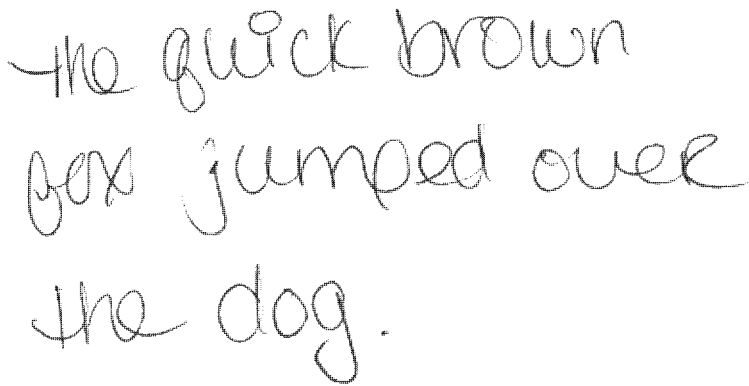 the quick brown
fox jumped over
the dog.